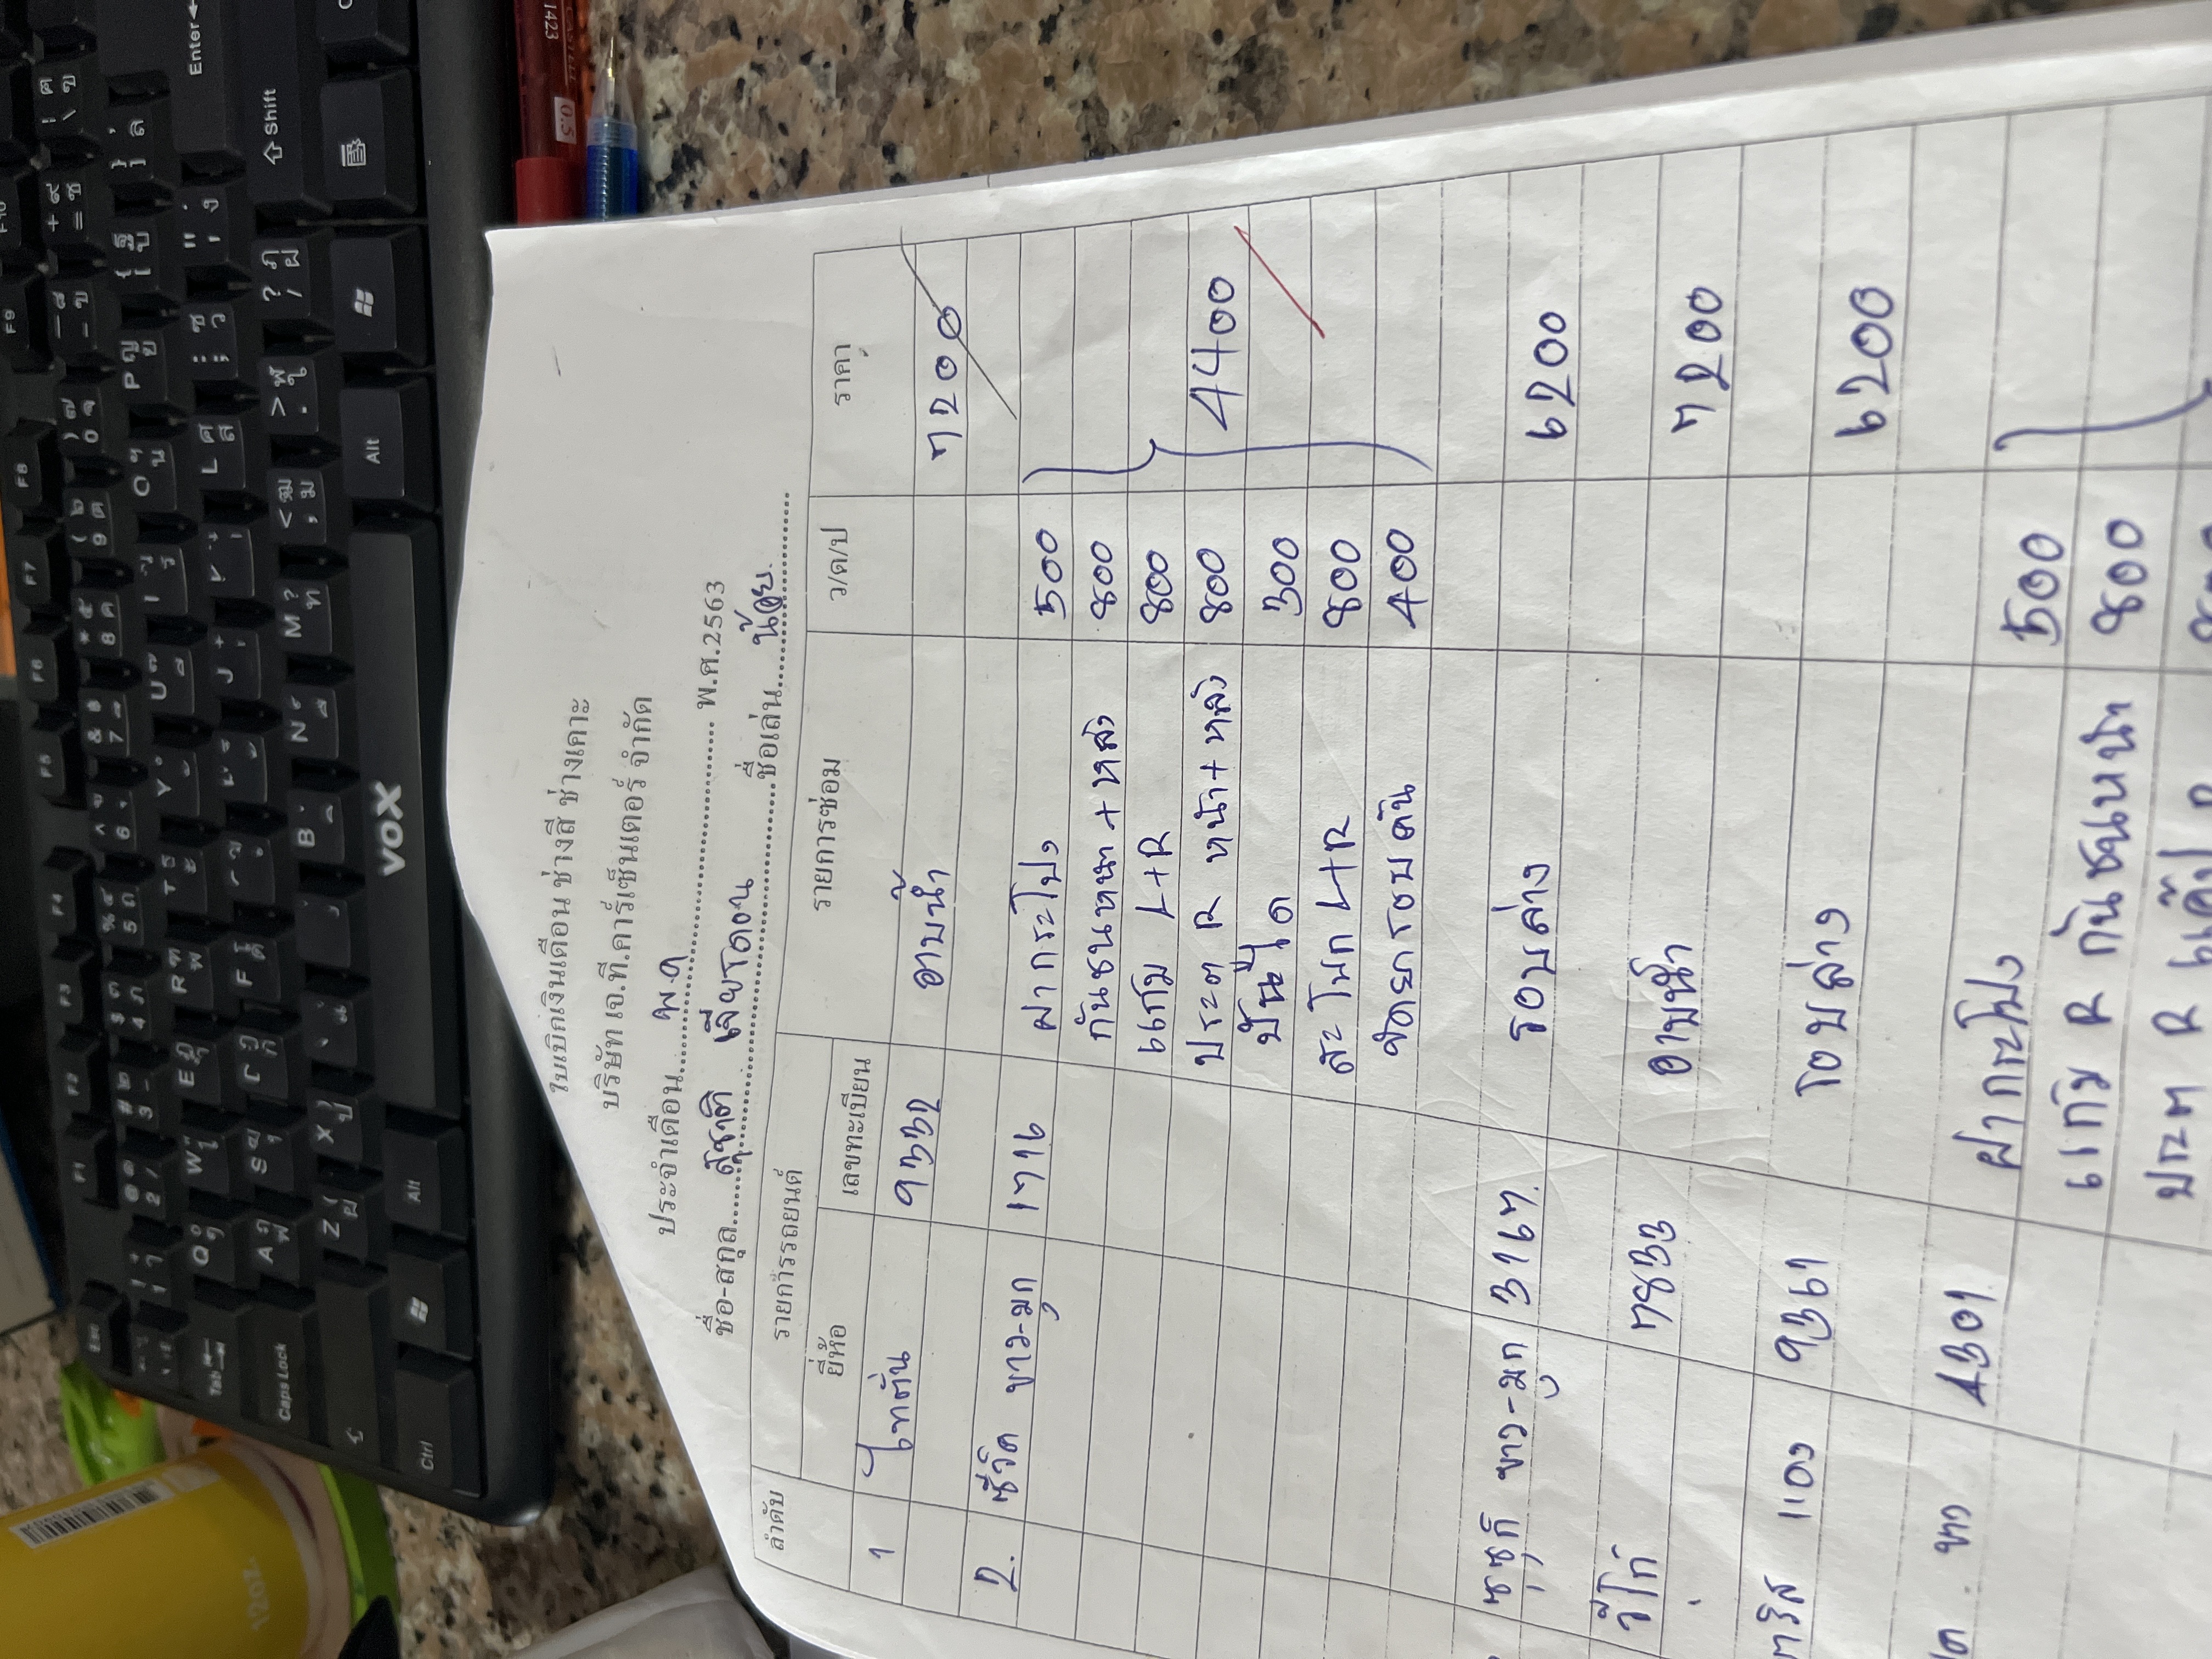 ใบเบิกเงินเดือน ช่างสี ช่างเคาะ
บริษัท เจ.ที.คาร์เซ็นเตอร์ จำกัด
ประจำเดือน............พ.ค............ พ.ศ.2563
ชื่อ-สกุล......สุชาติ ............ชื่อเล่น......น้อย......
ลำดับ รายการรถยนต์ รายการซ่อม ว/ด/ป ราคา
ยี่ห้อ เลขทะเบียน
1 ไททั่น 9332 อาบน้ำ 7200
2. ซีวิค ขาว-มุก 1716 ฝากระโปง 500
กันชนหน้า+หลัง 800
แก้ม L+R 800
ประตู R หน้า+หลัง 800 4400
บันได 300
สะโพก L+R 800
400
ซูซูกิ ขาว-มุก 3167 รอบล่าง 6200
วีโก้ 7833 อาบน้ำ 7200
9361 รอบล่าง 6200
ขาว 4301 ฝากระโปง 500
แก้ม R กันชนหน้า 800
ประตู R แค๊ป
VOX
Enter
Shift
Alt
Ctrl
Caps Lock
Tab
Esc
F1
F2
F3
F4
F5
F6
F7
F8
F9
1423
0.5